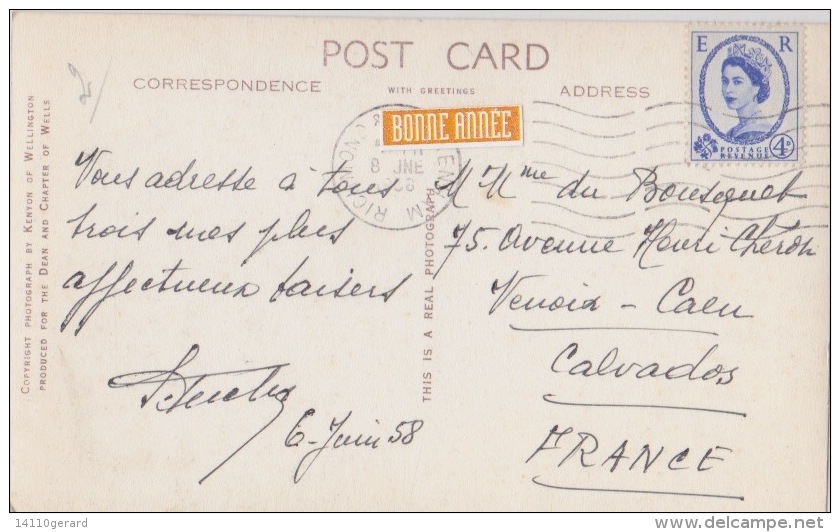 POST CARD
CORRESPONDENCE
WITH GREETINGS
ADDRESS
E R
POSTAGE
REVENUE
4D
BONNE ANNÉE
8 JNE
RICHMOND
COPYRIGHT PHOTOGRAPH BY KENYON OF WELLINGTON
PRODUCED FOR THE DEAN AND CHAPTER OF WELLS
THIS IS A REAL PHOTOGRAPH
Vous adresse à tous
trois mes plus
affectueux baisers
6-Juin 58
M Mme du Bousquet
75. Avenue Henri Chéron
Venoix - Caen
Calvados
FRANCE
14110gerard
delcampe.net